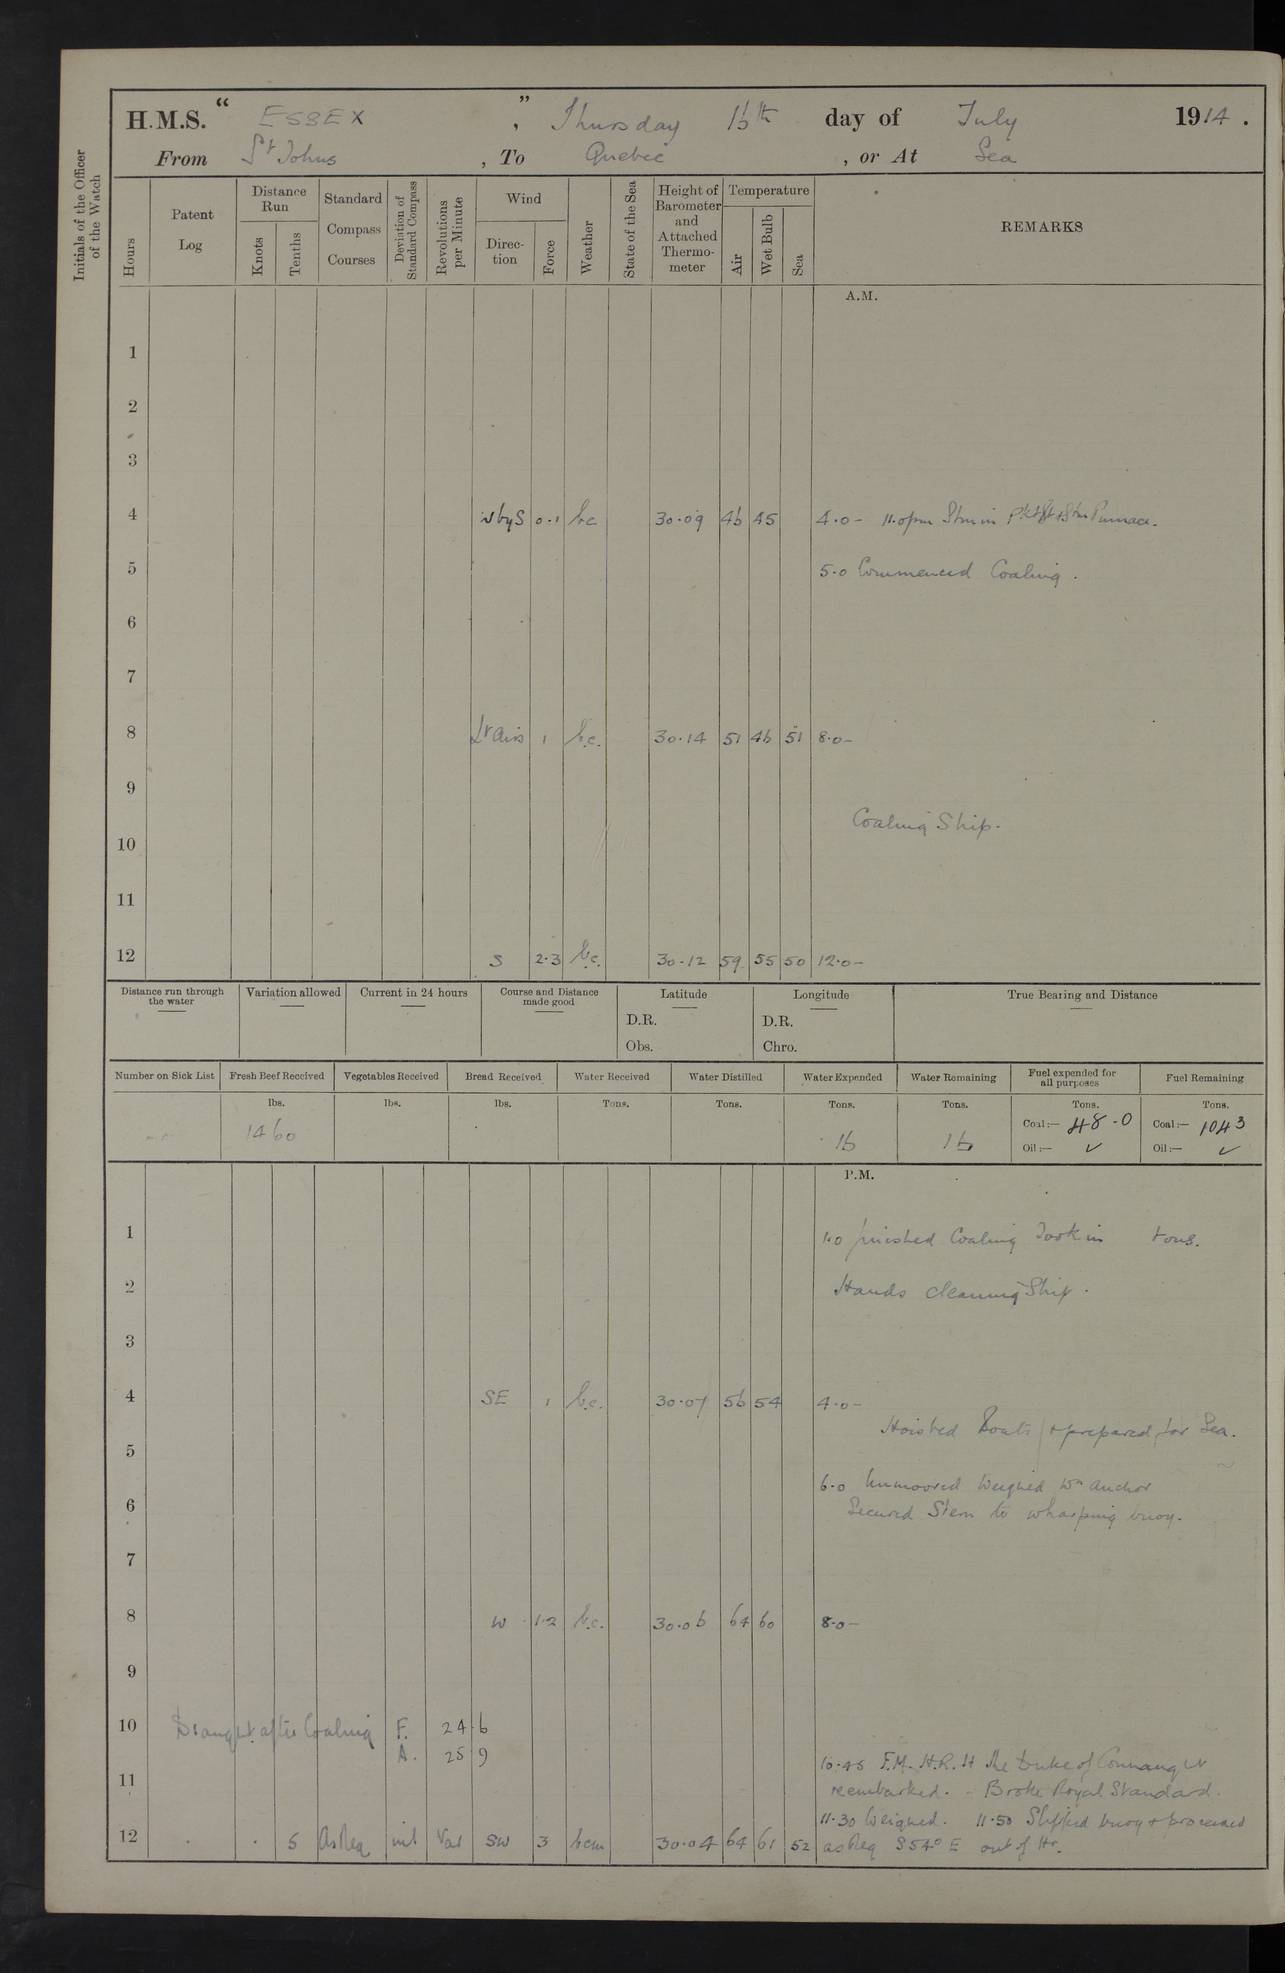 H.M.S. “ ESSEX ” , Thursday 16th day of July 1914 .
From St Johns , To Quebec , or At Sea
Initials of the Officer of the Watch
Hours
Patent Log
Distance Run
Knots
Tenths
Standard Compass Courses
Deviation of Standard Compass
Revolutions per Minute
Wind
Direc-tion
Force
Weather
State of the Sea
Height of Barometer and Attached Thermo-meter
Temperature
Air
Wet Bulb
Sea
REMARKS
A.M.
1
2
3
4 WbyS 0.1 bc 30.09 46 45 4.0 - 11.0pm Stm in & Stm Pinnace.
5 5.0 Commenced Coaling .
6
7
8 Lt airs 1 b.c. 30.14 51 46 51 8.0 -
9
Coaling Ship.
10
11
12 S 2.3 b.c. 30.12 59 55 50 12.0 -
Distance run through the water
Variation allowed
Current in 24 hours
Course and Distance made good
Latitude
D.R.
Obs.
Longitude
D.R.
Chro.
True Bearing and Distance
Number on Sick List
Fresh Beef Received
Vegetables Received
Bread Received
Water Received
Water Distilled
Water Expended
Water Remaining
Fuel expended for all purposes
Fuel Remaining
lbs. lbs. lbs. Tons. Tons. Tons. Tons. Tons. Tons.
1460 16 16 Coal:— 48.0 Coal:— 1043
Oil:— ✓ Oil:— ✓
P.M.
1 1.0 finished Coaling Took in tons.
2 Hands cleaning Ship .
3
4 SE 1 b.c. 30.07 56 54 4.0 -
Hoisted Boats & prepared for Sea.
5
6.0 Unmoored Weighed Wr anchor
6 Secured Stern to wharping buoy.
7
8 W 1.2 b.c. 30.06 64 60 8.0 -
9
10 Draught after Coaling F. 24 6
A. 25 9
10.45 F.M. H.R.H the Duke of Connaught
11 reembarked. - Broke Royal Standard.
11.30 Weighed. 11.50 Slipped buoy & proceeded
12 5 AsReq nil Var SW 3 bcm 30.04 64 61 52 as Req S54°E out of Hr.